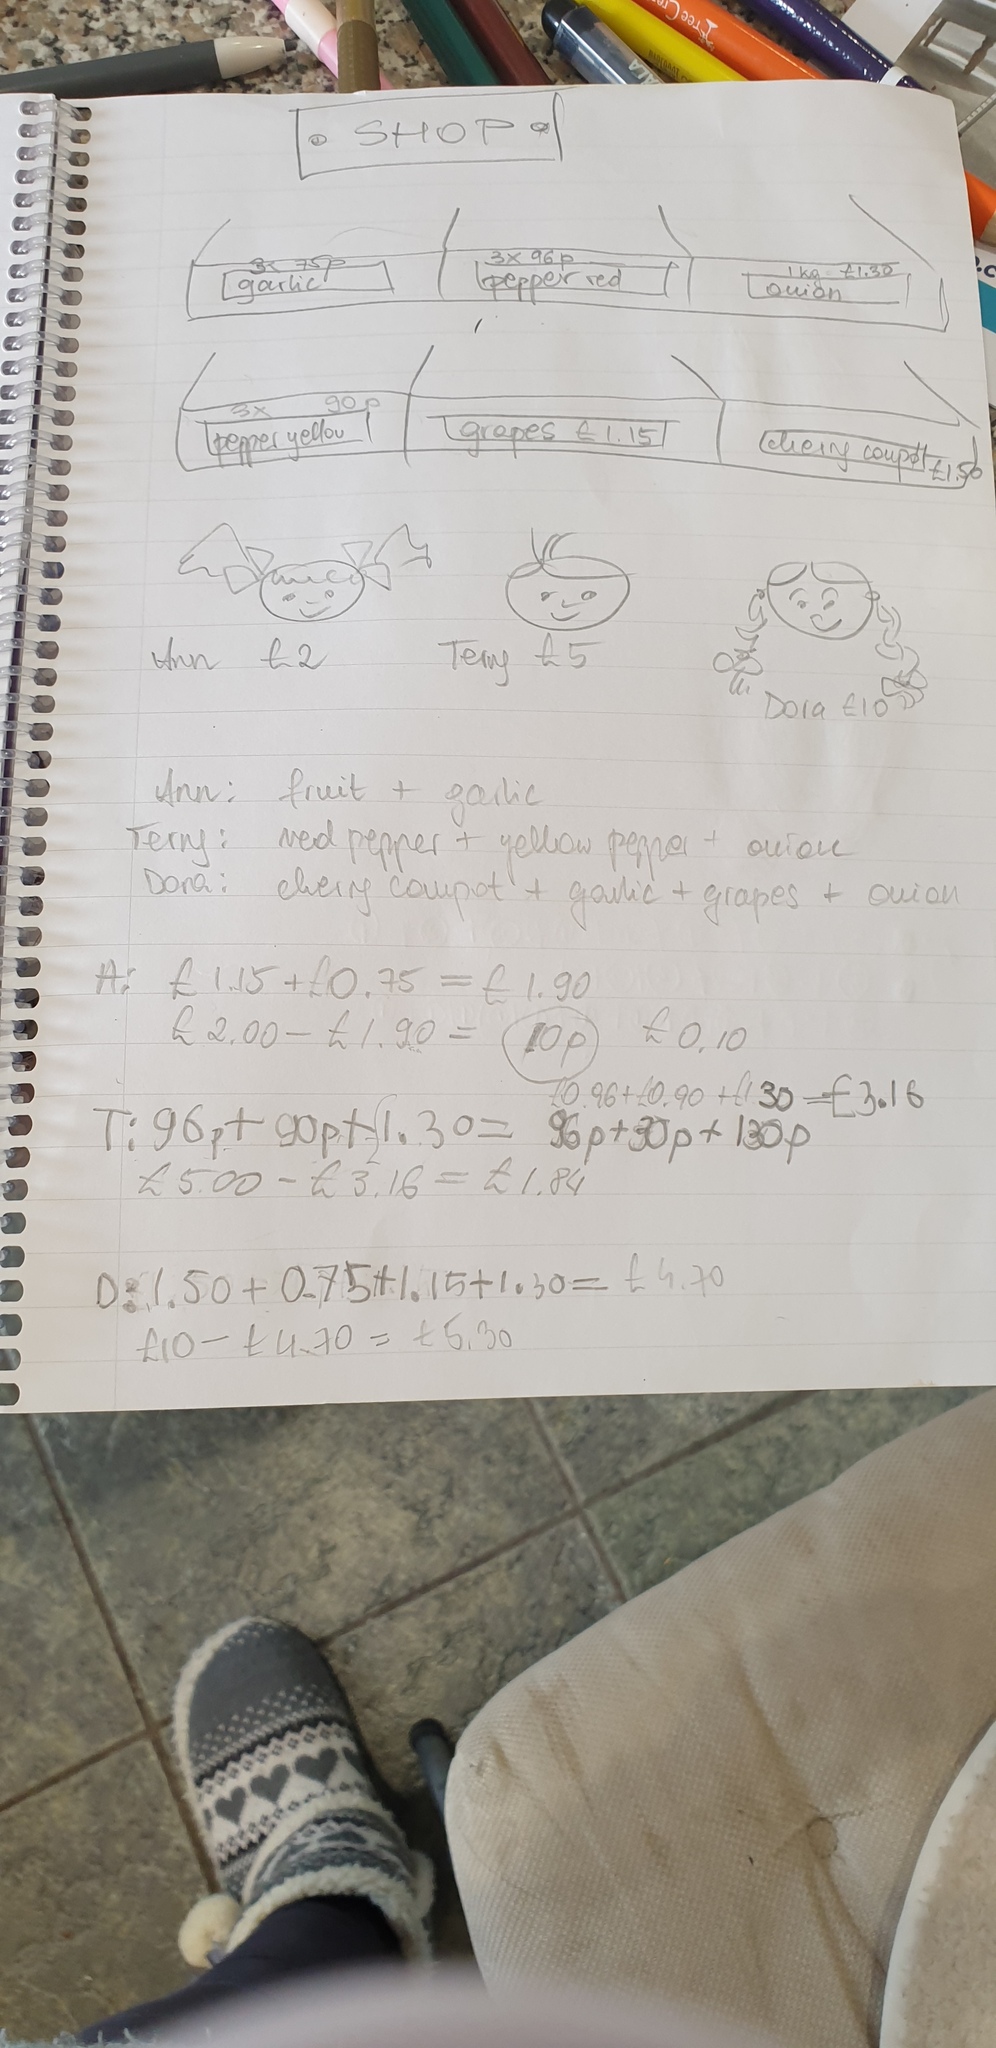 Tree Cre
SHOP
3x 75p
garlic
3x 96p
pepper red
1kg £1.30
onion
3x 90p
pepper yellow
grapes £1.15
cherry compot
£1.50
Ann £2
Terry £5
Dora £10
Ann: fruit + garlic
Terry: red pepper + yellow pepper + onion
Dora: cherry compot + garlic + grapes + onion
A: £1.15 + £0.75 = £1.90
£2.00 - £1.90 = 10p £0.10
£0.96 + £0.90 + £1.30 = £3.16
T: 96p + 90p + £1.30 = 96p + 90p + 130p
£5.00 - £3.16 = £1.84
D: 1.50 + 0.75 + 1.15 + 1.30 = £4.70
£10 - £4.70 = £5.30